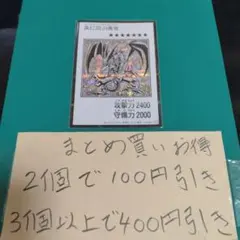 攻撃力 2400
守備力 2000
まとめ買いお得
2個で100円引き
3個以上で400円引き